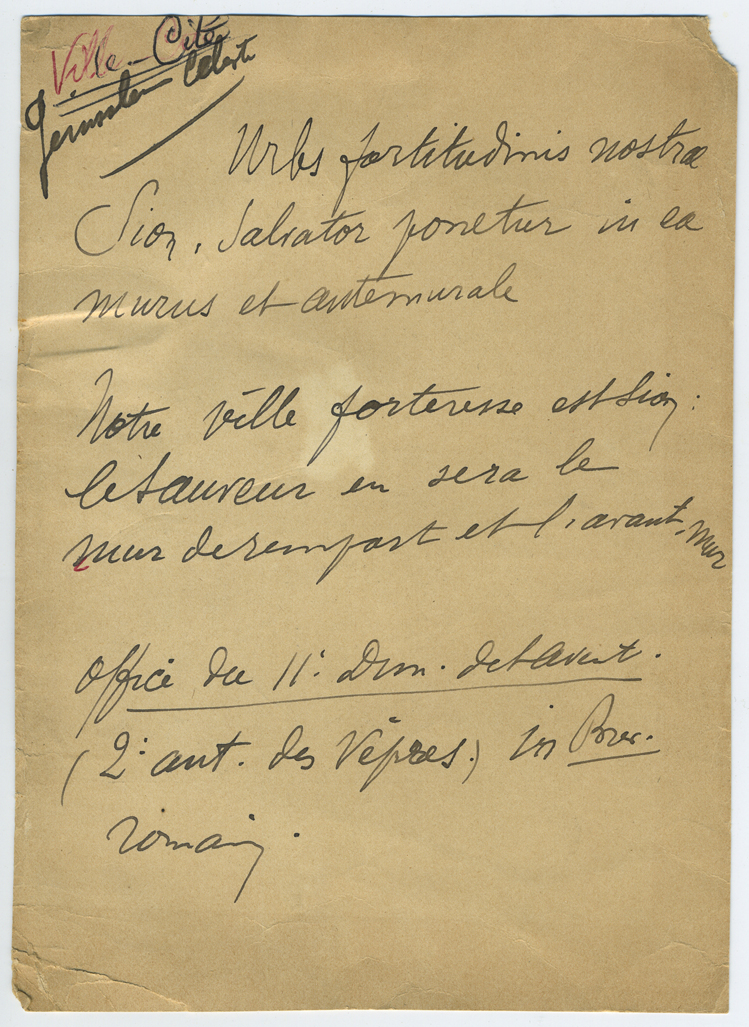 Ville - Cité
Jerusalem Céleste
Urbs fortitudinis nostræ
Sion, Salvator ponetur in ea
murus et antemurale
Notre ville forteresse est Sion :
le Sauveur en sera le
mur de rempart et l'avant-mur
Office du II: Dim. de l'Avent.
(2: ant. des Vêpres.) in Brev.
romain.